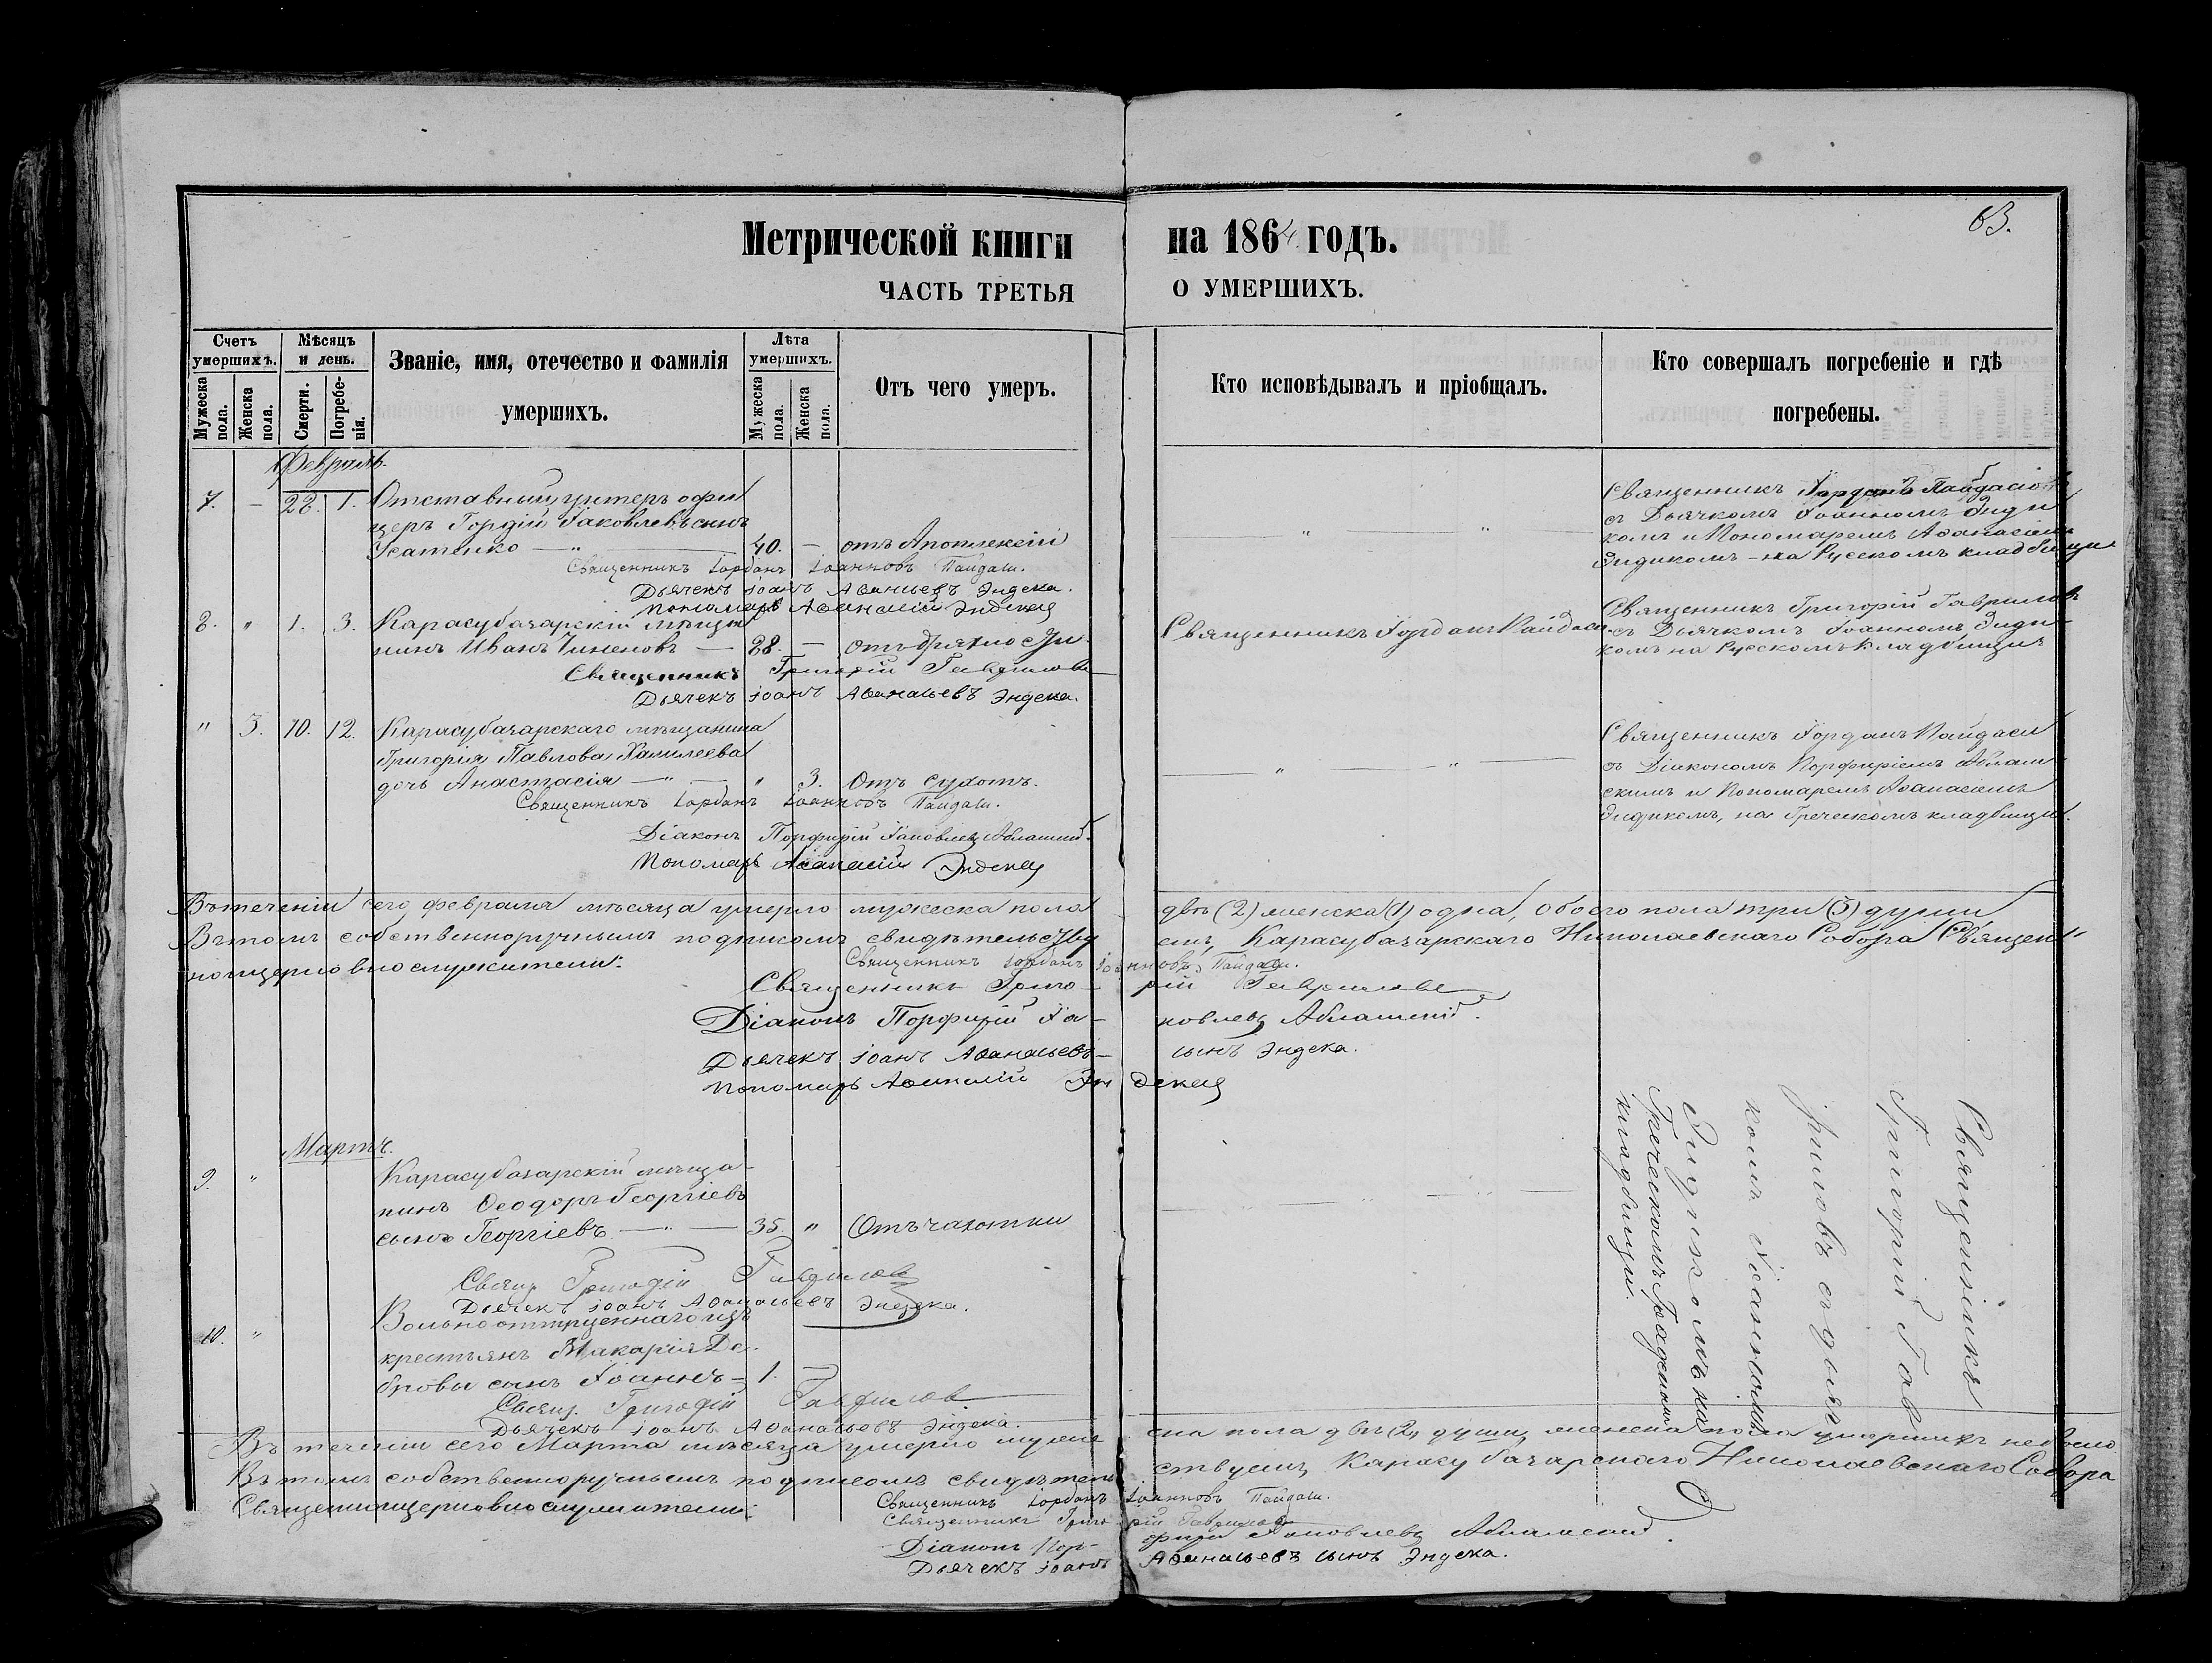 63.
Метрической книги на 1864 годъ.
ЧАСТЬ ТРЕТЬЯ О УМЕРШИХЪ.
Счетъ умершихъ.
Мужеска пола.
Женска пола.
Мѣсяцъ и день.
Смерти.
Погребенія.
Званіе, имя, отечество и фамилія
умершихъ.
Лѣта умершихъ.
Мужеска пола.
Женска пола.
Отъ чего умеръ.
Кто исповѣдывалъ и пріобщалъ.
Кто совершалъ погребеніе и гдѣ
погребены.
Февраль.
7. — 28. 1. Отставный унтеръ офи
церъ Гордій Іаковлевъ сынъ
Усатенко — " — 40. — отъ Апоплексіи
Священникъ Іорданъ Іоанновъ Пайдаси.
Дьячекъ Іоанъ Аѳанасьевъ Эндека.
Пономарь Аѳанасій Эндека
" "
Священникъ Іорданъ Пайдаси
съ Дьячкомъ Іоанномъ Энди
комъ и Пономаремъ Аѳанасіемъ
Эндикомъ — на Русскомъ кладбищѣ
8. " 1. 3. Карасубазарскій мѣща
нинъ Иванъ — 28. —
Священникъ Григорій Гавриловъ
Дьячекъ Іоанъ Аѳанасьевъ Эндека.
Священникъ Іорданъ Пайдаси.
Священникъ Григорій Гавриловъ
съ Дьячкомъ Іоанномъ Энди
комъ на Русскомъ кладбищѣ
" 3. 10. 12. Карасубазарскаго мѣщанина
Григорія Павлова Халилеева
дочь Анастасія — " — " 3. Отъ сухотъ.
Священникъ Іорданъ Іоанновъ Пайдаси.
Діаконъ Порфирій Іаковлевъ
Пономарь Аѳанасій Эндека
" "
Священникъ Іорданъ Пайдаси
съ Діакономъ Порфиріемъ
и Пономаремъ Аѳанасіемъ
Эндикомъ, на Греческомъ кладбищѣ.
Въ теченіи сего февраля мѣсяца умерло мужеска пола двѣ (2) женска (1) одна, обоего пола три (3) души
Въ томъ собственноручнымъ подписомъ свидѣтельствуемъ, Карасубазарскаго Николаевскаго Собора Священ
ноцерковнослужители:
Священникъ Іорданъ Іоанновъ Пайдаси.
Священникъ Григорій Гавриловъ
Діаконъ Порфирій Іаковлевъ
Дьячекъ Іоанъ Аѳанасьевъ сынъ Эндека.
Пономарь Аѳанасій Эндека
Мартъ.
9. " Карасубазарскій мѣща
нинъ Ѳеодоръ Георгіевъ
сынъ Георгіевъ — " — 35. " Отъ чахотки
Свящ. Григорій Гавриловъ
Дьячекъ Іоанъ Аѳанасьевъ Эндека.
" "
Священникъ
Григорій Гав
риловъ съ Дьяч
комъ Іоанномъ
Эндикомъ на
Греческомъ Градскомъ
кладбищѣ.
10. " Вольноотпущеннаго изъ
крестьянъ Макарія До
бровы сынъ Іоаннъ — 1. —
Свящ. Григорій Гавриловъ
Дьячекъ Іоанъ Аѳанасьевъ Эндека.
Въ теченіи сего Марта мѣсяца умерло мужеска пола двѣ (2) души, женска пола умершихъ небыло
Въ томъ собственноручнымъ подписомъ свидѣтельствуемъ, Карасубазарскаго Николаевскаго Собора
Священноцерковнослужители:
Священникъ Іорданъ Іоанновъ Пайдаси.
Священникъ Григорій Гавриловъ
Діаконъ Порфирій Іаковлевъ
Дьячекъ Іоанъ Аѳанасьевъ сынъ Эндека.